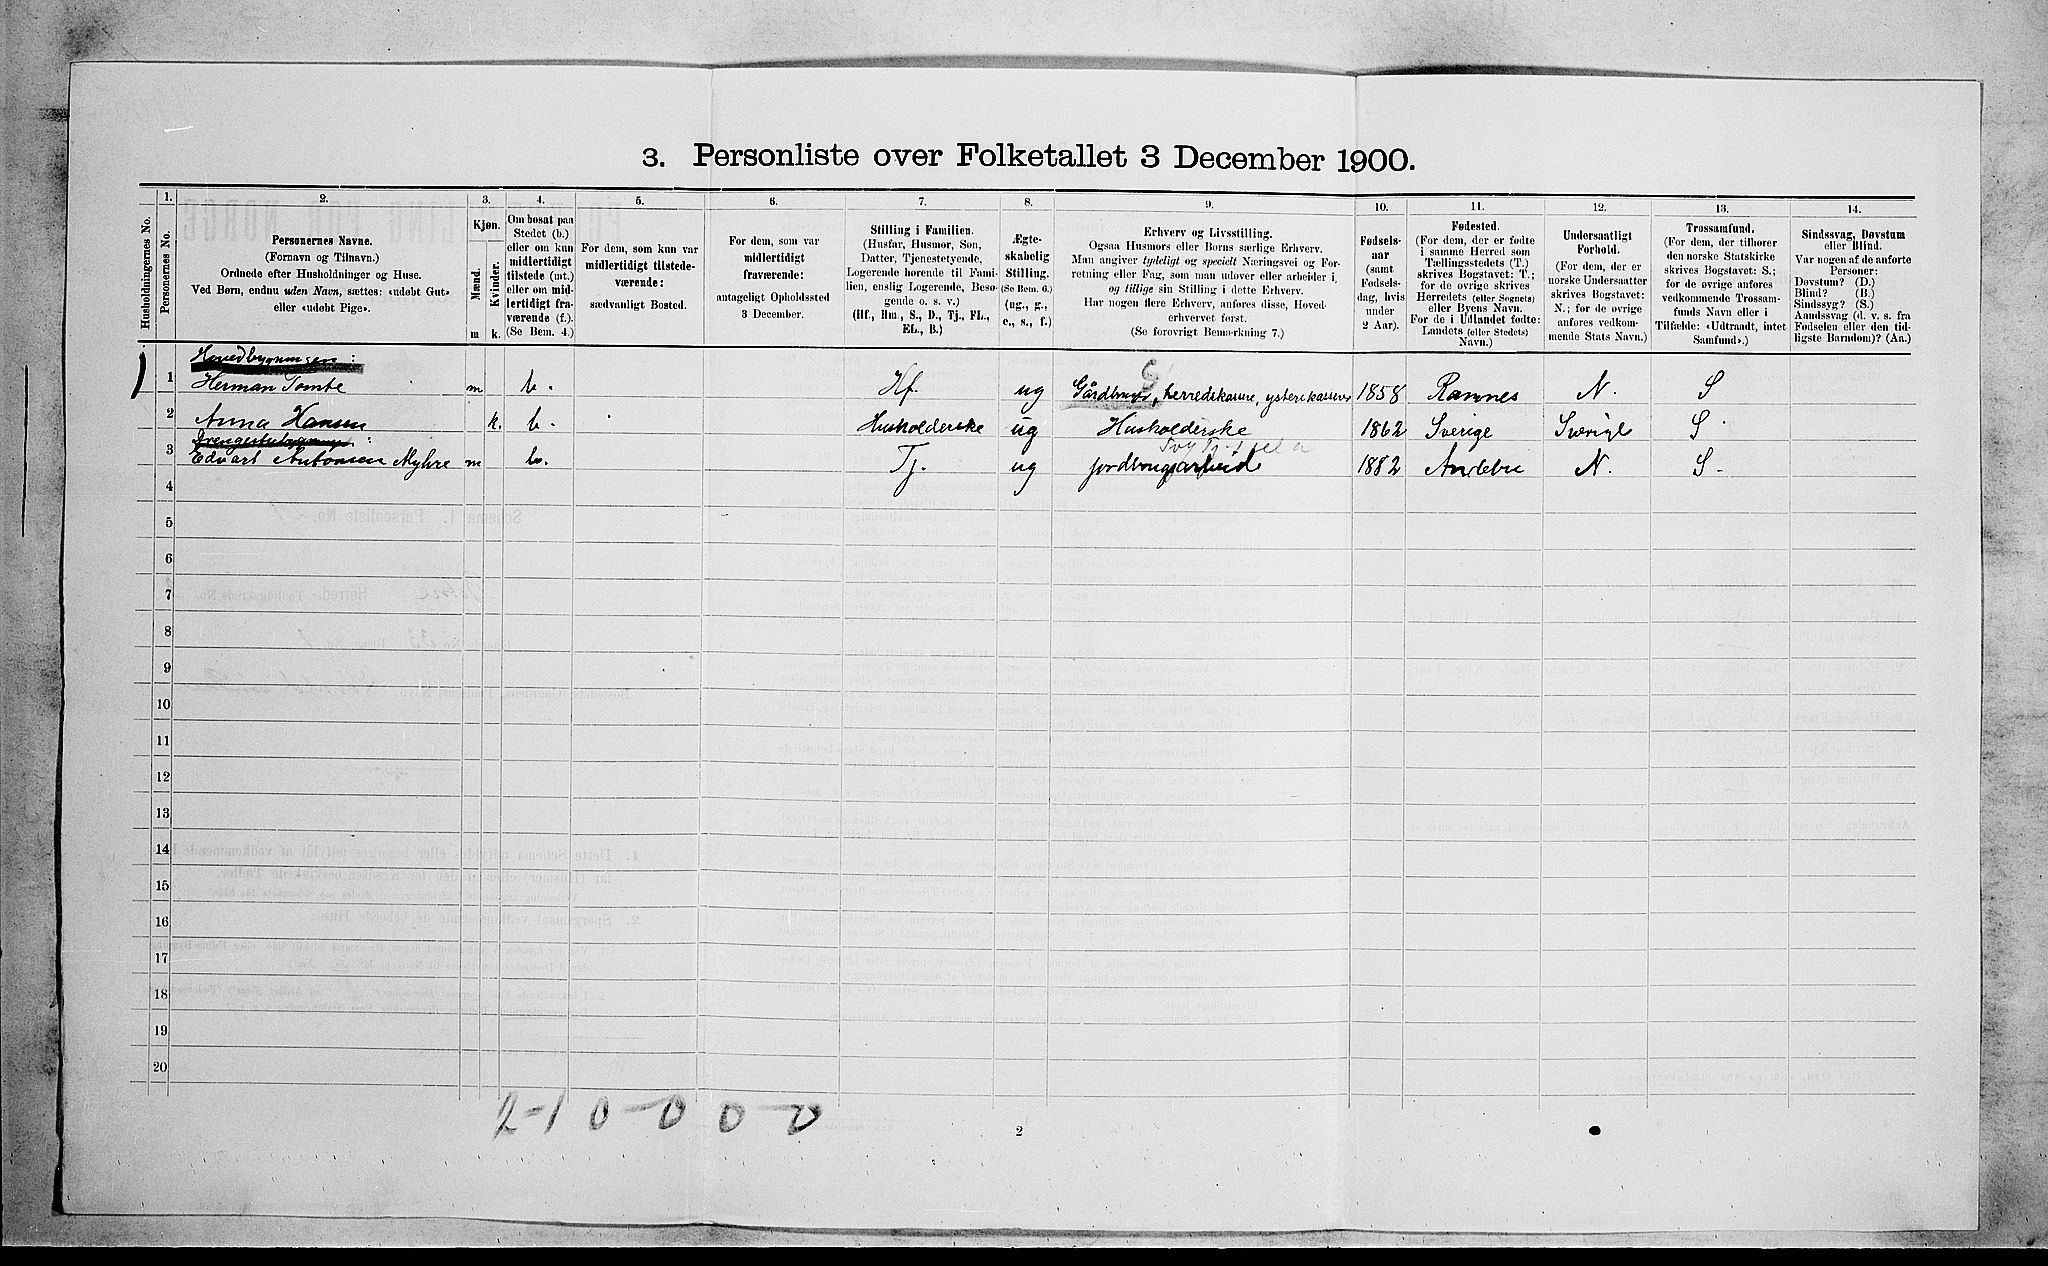 3. Personliste over Folketallet 3 December 1900.
Husholdningernes No.
1.
Personernes No.
2.
Personernes Navne.
(Fornavn og Tilnavn.)
Ordnede efter Husholdninger og Huse.
Ved Børn, endnu uden Navn, sættes: «udøbt Gut»
eller «udøbt Pige».
3.
Kjøn.
Mænd.
Kvinder.
m
k.
4.
Om bosat paa
Stedet (b.)
eller om kun
midlertidigt
tilstede (mt.)
eller om mid-
lertidigt fra-
værende (f.).
(Se Bem. 4.)
5.
For dem, som kun var
midlertidigt tilstede-
værende:
sædvanligt Bosted.
6.
For dem, som var
midlertidigt
fraværende:
antageligt Opholdssted
3 December.
7.
Stilling i Familien.
(Husfar, Husmor, Søn,
Datter, Tjenestetyende,
Logerende hørende til Fami-
lien, enslig Logerende, Besø-
gende o. s. v.)
(Hf., Hm., S., D., Tj., FL.,
EL., B.)
8.
Ægte-
skabelig
Stilling.
(Se Bem. 6.)
(ug., g.,
e., s., f.)
9.
Erhverv og Livsstilling.
Ogsaa Husmors eller Børns særlige Erhverv.
Man angiver tydeligt og specielt Næringsvei og For-
retning eller Fag, som man udøver eller arbeider i,
og tillige sin Stilling i dette Erhverv.
Har nogen flere Erhverv, anføres disse, Hoved-
erhvervet først.
(Se forøvrigt Bemerkning 7.)
10.
Fødsels-
aar
(samt
Fødsels-
dag, hvis
under
2 Aar).
11.
Fødested.
(For dem, der er fødte
i samme Herred som
Tællingsstedets (T.)
skrives Bogstavet: T.;
for de øvrige skrives
Herredets (eller Sognets)
eller Byens Navn.
For de i Udlandet fødte:
Landets (eller Stedets)
Navn.)
12.
Undersaatligt
Forhold.
(For dem, der er
norske Undersaatter
skrives Bogstavet:
N.; for de øvrige
anføres vedkom-
mende Stats Navn.)
13.
Trossamfund.
(For dem, der tilhører
den norske Statskirke
skrives Bogstavet: S.;
for de øvrige anføres
vedkommende Trossam-
funds Navn eller i
Tilfælde: «Udtraadt, intet
Samfund».)
14.
Sindssvag, Døvstum
eller Blind.
Var nogen af de anførte
Personer:
Døvstum? (D.)
Blind? (B.)
Sindssyg? (S.)
Aandssvag (d. v. s. fra
Fødselen eller den tid-
ligste Barndom)? (Aa.)
Hovedbygningen:
1 Herman Tomte m b. Hf. ug Gårdbruger, herredskasse, ysterikasserer 1858 Ramnes N. S
2 Anna Hansen k. b. Husholderske ug Husholderske 1862 Sverige Sverige S.
Drengestubygning:
3 Edvart Antonsen Myhre m b. Tj. ug jordbrugsarbeide 1882 Andebu N. S.
4
5
6
7
8
9
10
11
12
13
14
15
16
17
18
19
20
2-1 0-0 0-0
2